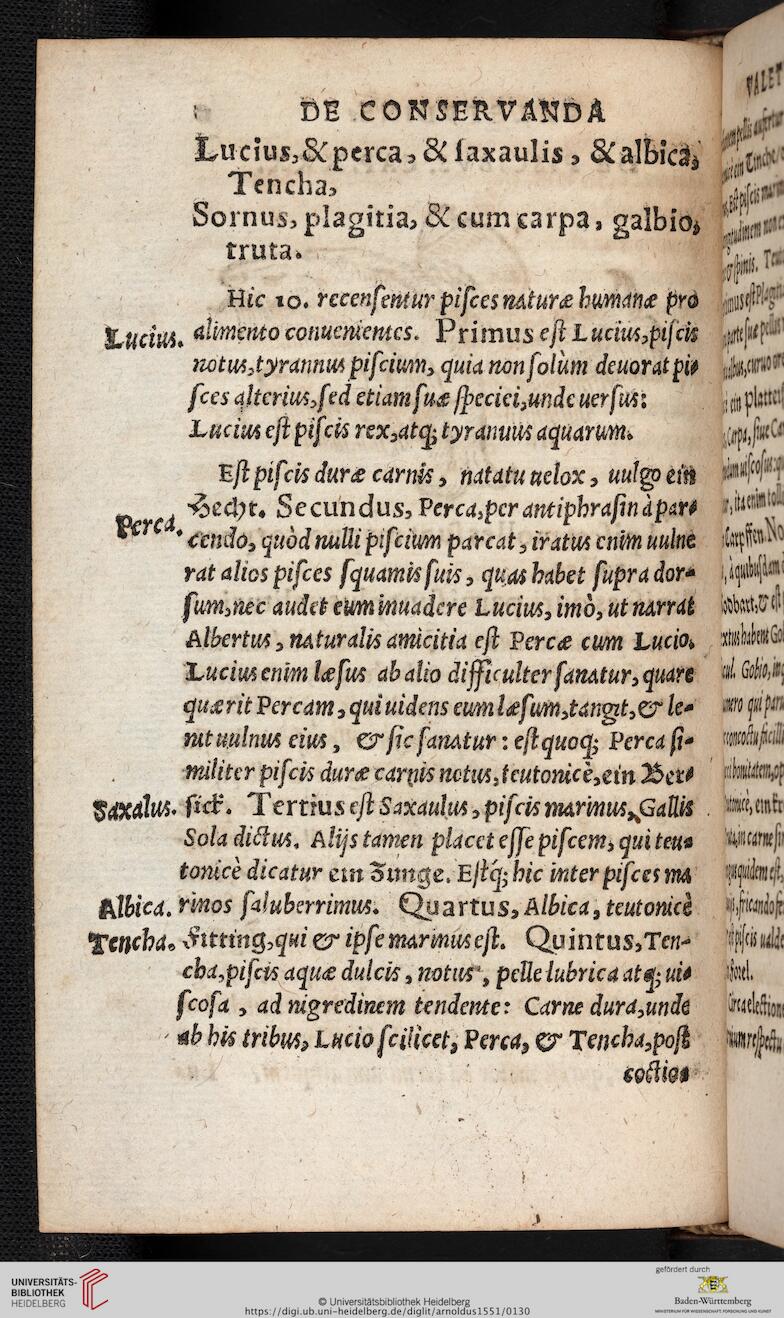 DE CONSERVANDA
Lucius, & perca, & ſaxaulis, & albica,
Tencha,
Sornus, plagitia, & cum carpa, galbio,
truta.
Hic 10. recenſentur piſces naturæ humanæ pro
Lucius. alimento conuenientes. Primus eſt Lucius, piſcis
notus, tyrannus piſcium, quia non ſolùm deuorat pi-
ſces alterius, ſed etiam ſuæ ſpeciei, unde uerſus:
Lucius eſt piſcis rex, atq; tyranuus aquarum.
Eſt piſcis duræ carnis, natatu uelox, uulgo ein
Hecht. Secundus, Perca, per antiphraſin à par-
Perca. cendo, quòd nulli piſcium parcat, iratus enim uulne
rat alios piſces ſquamis ſuis, quas habet ſupra dor-
ſum, nec audet eum inuadere Lucius, imò, ut narrat
Albertus, naturalis amicitia eſt Percæ cum Lucio.
Lucius enim læſus ab alio difficulter ſanatur, quare
quærit Percam, qui uidens eum læſum, tangit, & le-
nit uulnus eius, & ſic ſanatur: eſt quoq; Perca ſi-
militer piſcis duræ carnis notus, teutonicè, ein Ber-
Saxalus. ſick. Tertius eſt Saxaulus, piſcis marinus, Gallis
Sola dictus. Alijs tamen placet eſſe piſcem, qui teu-
tonicè dicatur ein Zunge. Eſtq́; hic inter piſces ma
Albica. rinos ſaluberrimus. Quartus, Albica, teutonicè
Tencha. Fitting, qui & ipſe marinus eſt. Quintus, Ten-
cha, piſcis aquæ dulcis, notus, pelle lubrica atq; ui-
ſcoſa, ad nigredinem tendente: Carne dura, unde
ab his tribus, Lucio ſcilicet, Perca, & Tencha, poſt
coctio-
UNIVERSITÄTS-
BIBLIOTHEK
HEIDELBERG
© Universitätsbibliothek Heidelberg
https://digi.ub.uni-heidelberg.de/diglit/arnoldus1551/0130
gefördert durch
Baden-Württemberg
MINISTERIUM FÜR WISSENSCHAFT, FORSCHUNG UND KUNST